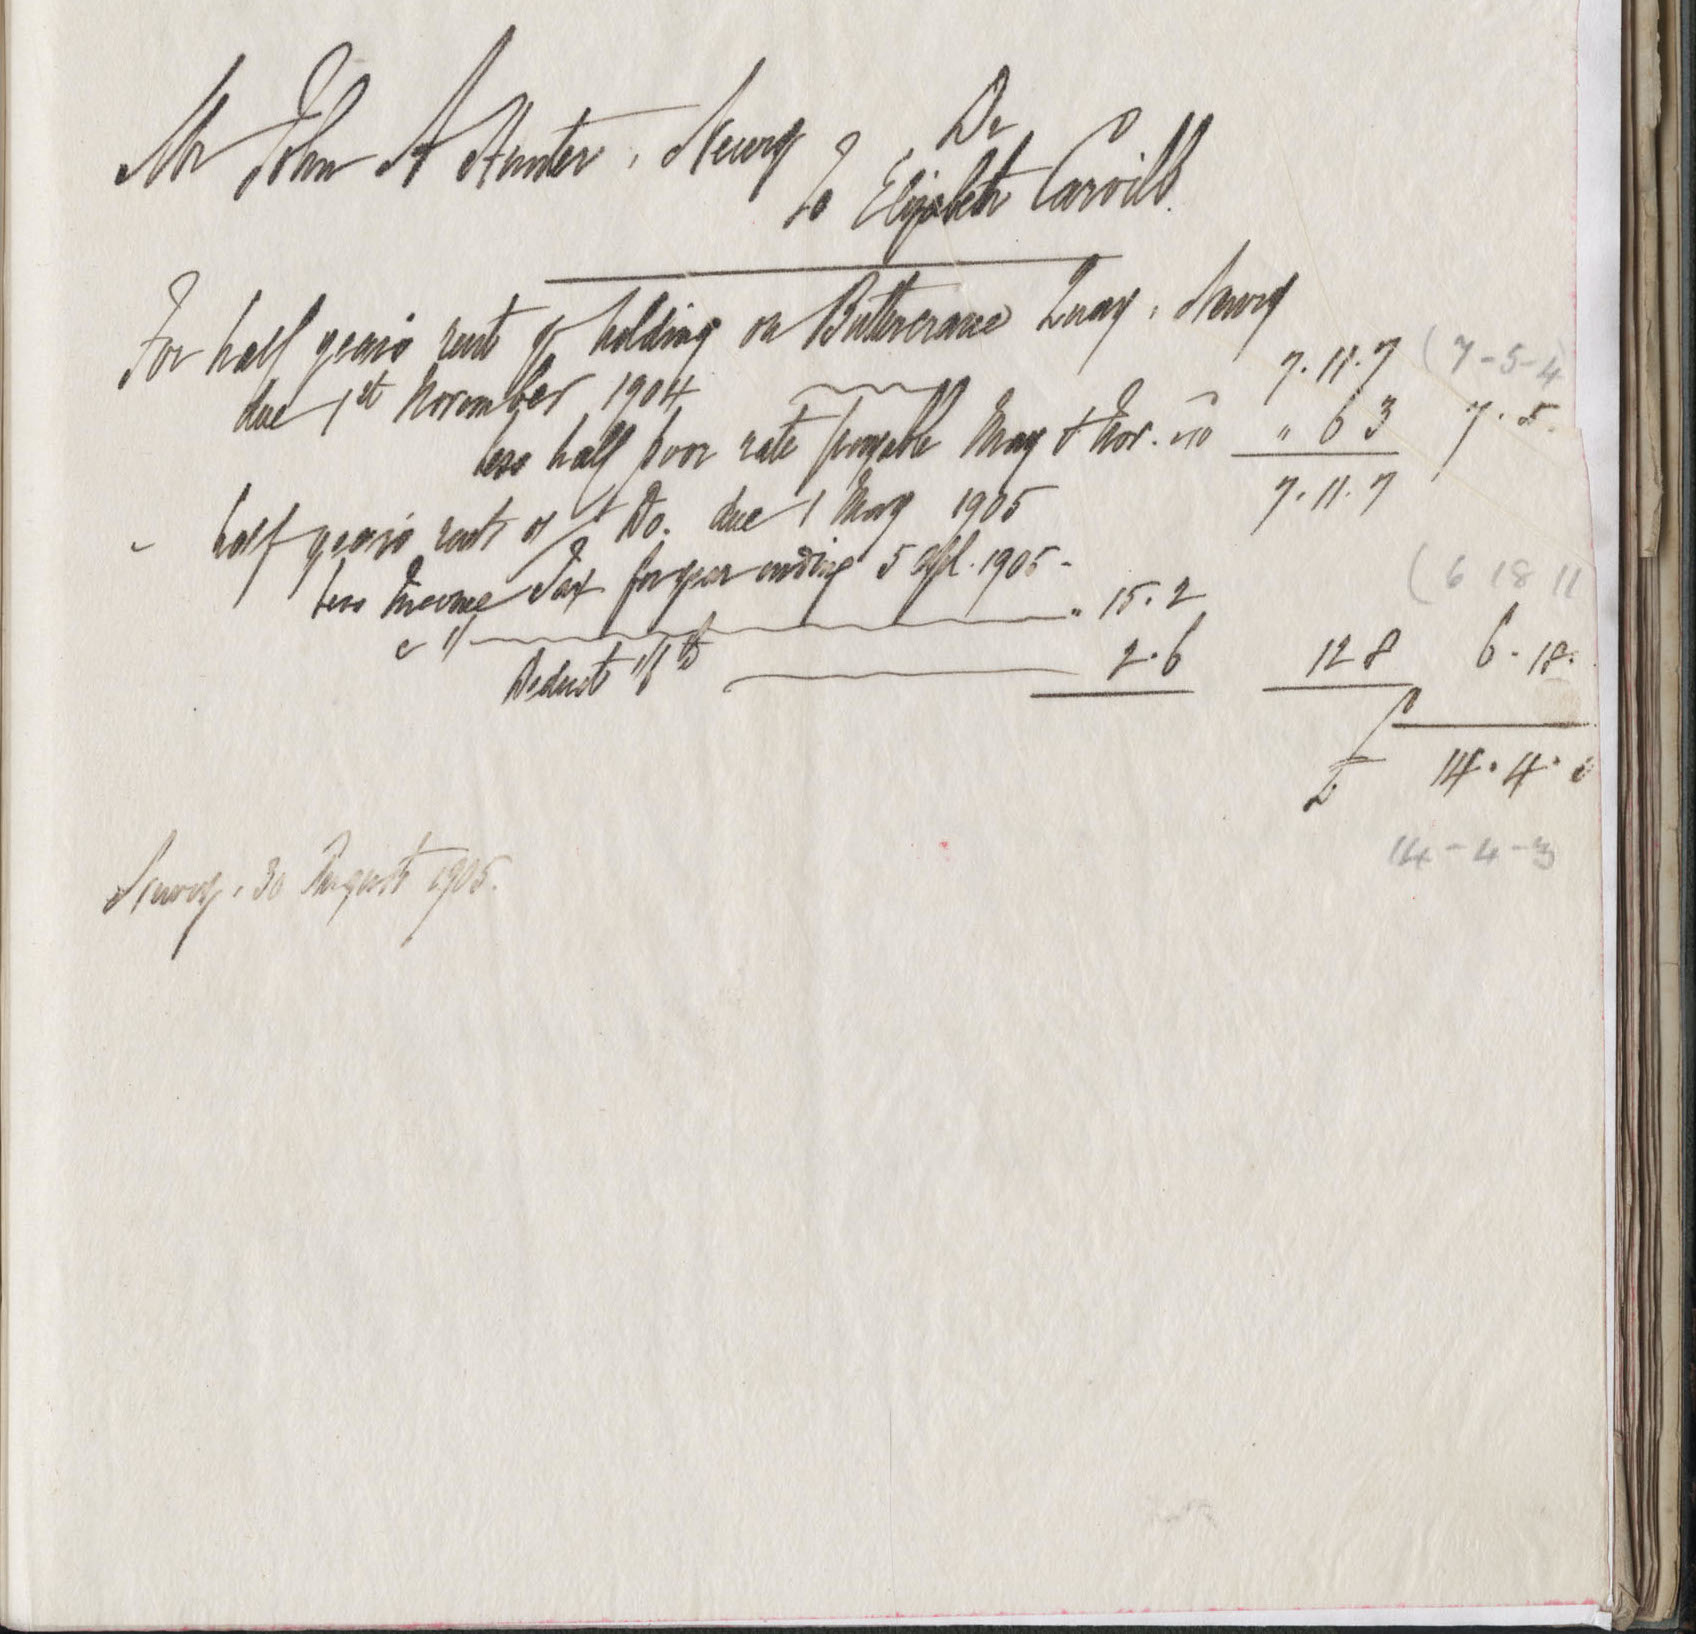 Mr John A Hunter, Newry
Dr
To Elizabeth Carvill.
For half years rent of holding on Buttercrane Quay, Newry
due 1st November 1904 7.11.7 (7-5-4
less half poor rate payable May & Nov. " 6 3 7.5.
" half years rent of Do. due 1 May 1905 7.11.7
less Income Tax for year ending 5 Apl. 1905 - " 15.2 (6 18 11
Deduct 1/6th 2.6 12 8 6.18.
£ 14.4.
14-4-3
Newry, 30 August 1905.